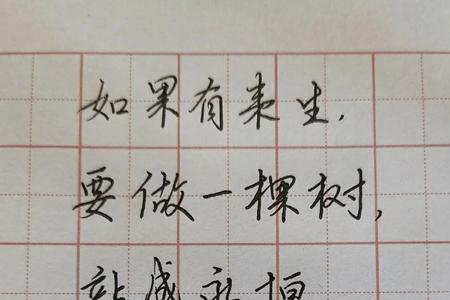 如果有来生，
要做一棵树，
站成永恒